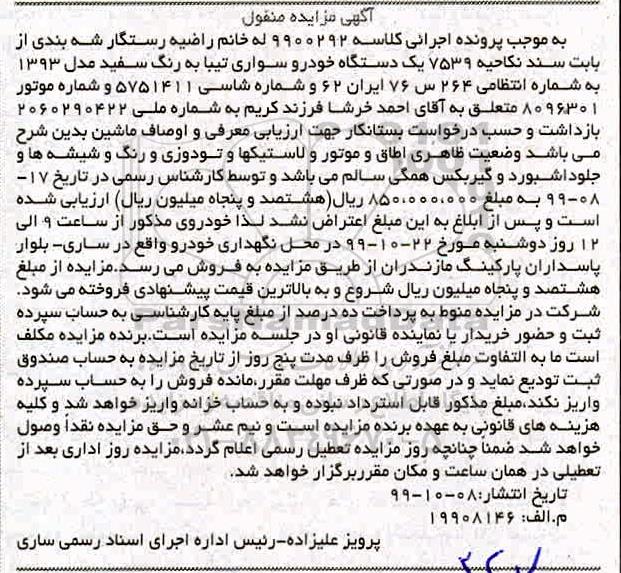 آگهی مزایده منقول
به موجب پرونده اجرائی کلاسه ۹۹۰۰۲۹۲ له خانم راضیه رستگار شه بندی از
بابت سند نکاحیه ۷۵۳۹ یک دستگاه خودرو سواری تیبا به رنگ سفید مدل ۱۳۹۳
به شماره انتظامی ۲۶۴ س ۷۶ ایران ۶۲ و شماره شاسی ۵۷۵۱۴۱۱ و شماره موتور
۸۰۹۶۳۰۱ متعلق به آقای احمد خرشا فرزند کریم به شماره ملی ۲۰۶۰۲۹۰۴۲۲
بازداشت و حسب درخواست بستانکار جهت ارزیابی معرفی و اوصاف ماشین بدین شرح
می باشد وضعیت ظاهری اطاق و موتور و لاستیکها و تودوزی و رنگ و شیشه ها و
جلوداشبورد و گیربکس همگی سالم می باشد و توسط کارشناس رسمی در تاریخ ۱۷-
۰۸-۹۹ به مبلغ ۸۵۰,۰۰۰,۰۰۰ ریال(هشتصد و پنجاه میلیون ریال) ارزیابی شده
است و پس از ابلاغ به این مبلغ اعتراض نشد لذا خودروی مذکور از ساعت ۹ الی
۱۲ روز دوشنبه مورخ ۲۲-۱۰-۹۹ در محل نگهداری خودرو واقع در ساری- بلوار
پاسداران پارکینگ مازندران از طریق مزایده به فروش می رسد.مزایده از مبلغ
هشتصد و پنجاه میلیون ریال شروع و به بالاترین قیمت پیشنهادی فروخته می شود.
شرکت در مزایده منوط به پرداخت ده درصد از مبلغ پایه کارشناسی به حساب سپرده
ثبت و حضور خریدار یا نماینده قانونی او در جلسه مزایده است.برنده مزایده مکلف
است ما به التفاوت مبلغ فروش را ظرف مدت پنج روز از تاریخ مزایده به حساب صندوق
ثبت تودیع نماید و در صورتی که ظرف مهلت مقرر،مانده فروش را به حساب سپرده
واریز نکند،مبلغ مذکور قابل استرداد نبوده و به حساب خزانه واریز خواهد شد و کلیه
هزینه های قانونی به عهده برنده مزایده است و نیم عشر و حق مزایده نقداً وصول
خواهد شد ضمناً چنانچه روز مزایده تعطیل رسمی اعلام گردد،مزایده روز اداری بعد از
تعطیلی در همان ساعت و مکان مقرربرگزار خواهد شد.
تاریخ انتشار:۰۸-۱۰-۹۹
م.الف: ۱۹۹۰۸۱۴۶
پرویز علیزاده-رئیس اداره اجرای اسناد رسمی ساری